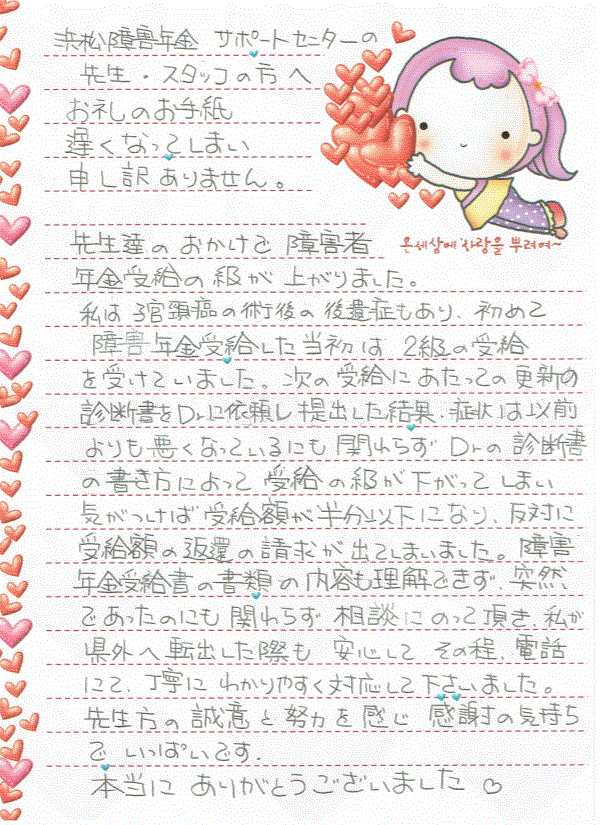 浜松障害年金 サポートセンターの
先生・スタッフの方へ
お礼のお手紙
遅くなってしまい
申し訳ありません。
온세상에 사랑을 뿌려여~
先生達のおかげで 障害者
年金受給の級が上がりました。
私は子宮頸癌の術後の後遺症もあり、初めて
障害年金受給した当初は 2級の受給
を受けていました。次の受給にあたっての更新の
診断書をDrに依頼し提出した結果、症状は以前
よりも悪くなっているにも関わらずDrの診断書
の書き方によって受給の級が下がってしまい
気がつけば受給額が半分以下になり、反対に
受給額の返還の請求が出てしまいました。障害
年金受給書の書類の内容も理解できず、突然
であったのにも関わらず相談にのって頂き、私が
県外へ転出した際も 安心して その程、電話
にて、丁寧にわかりやすく対応して下さいました。
先生方の誠意と努力を感じ 感謝の気持ち
でいっぱいです.
本当に ありがとうございました ♡